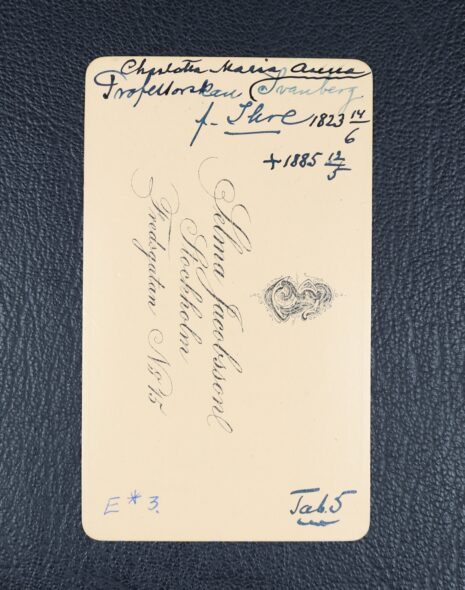 Charlotta Maria Anna
Professorskan Svanberg
f. Ihre 1823 14/6
+ 1885 12/5
Selma Jacobsson
Stockholm
Fredsgatan No 15
E * 3.
Tab. 5